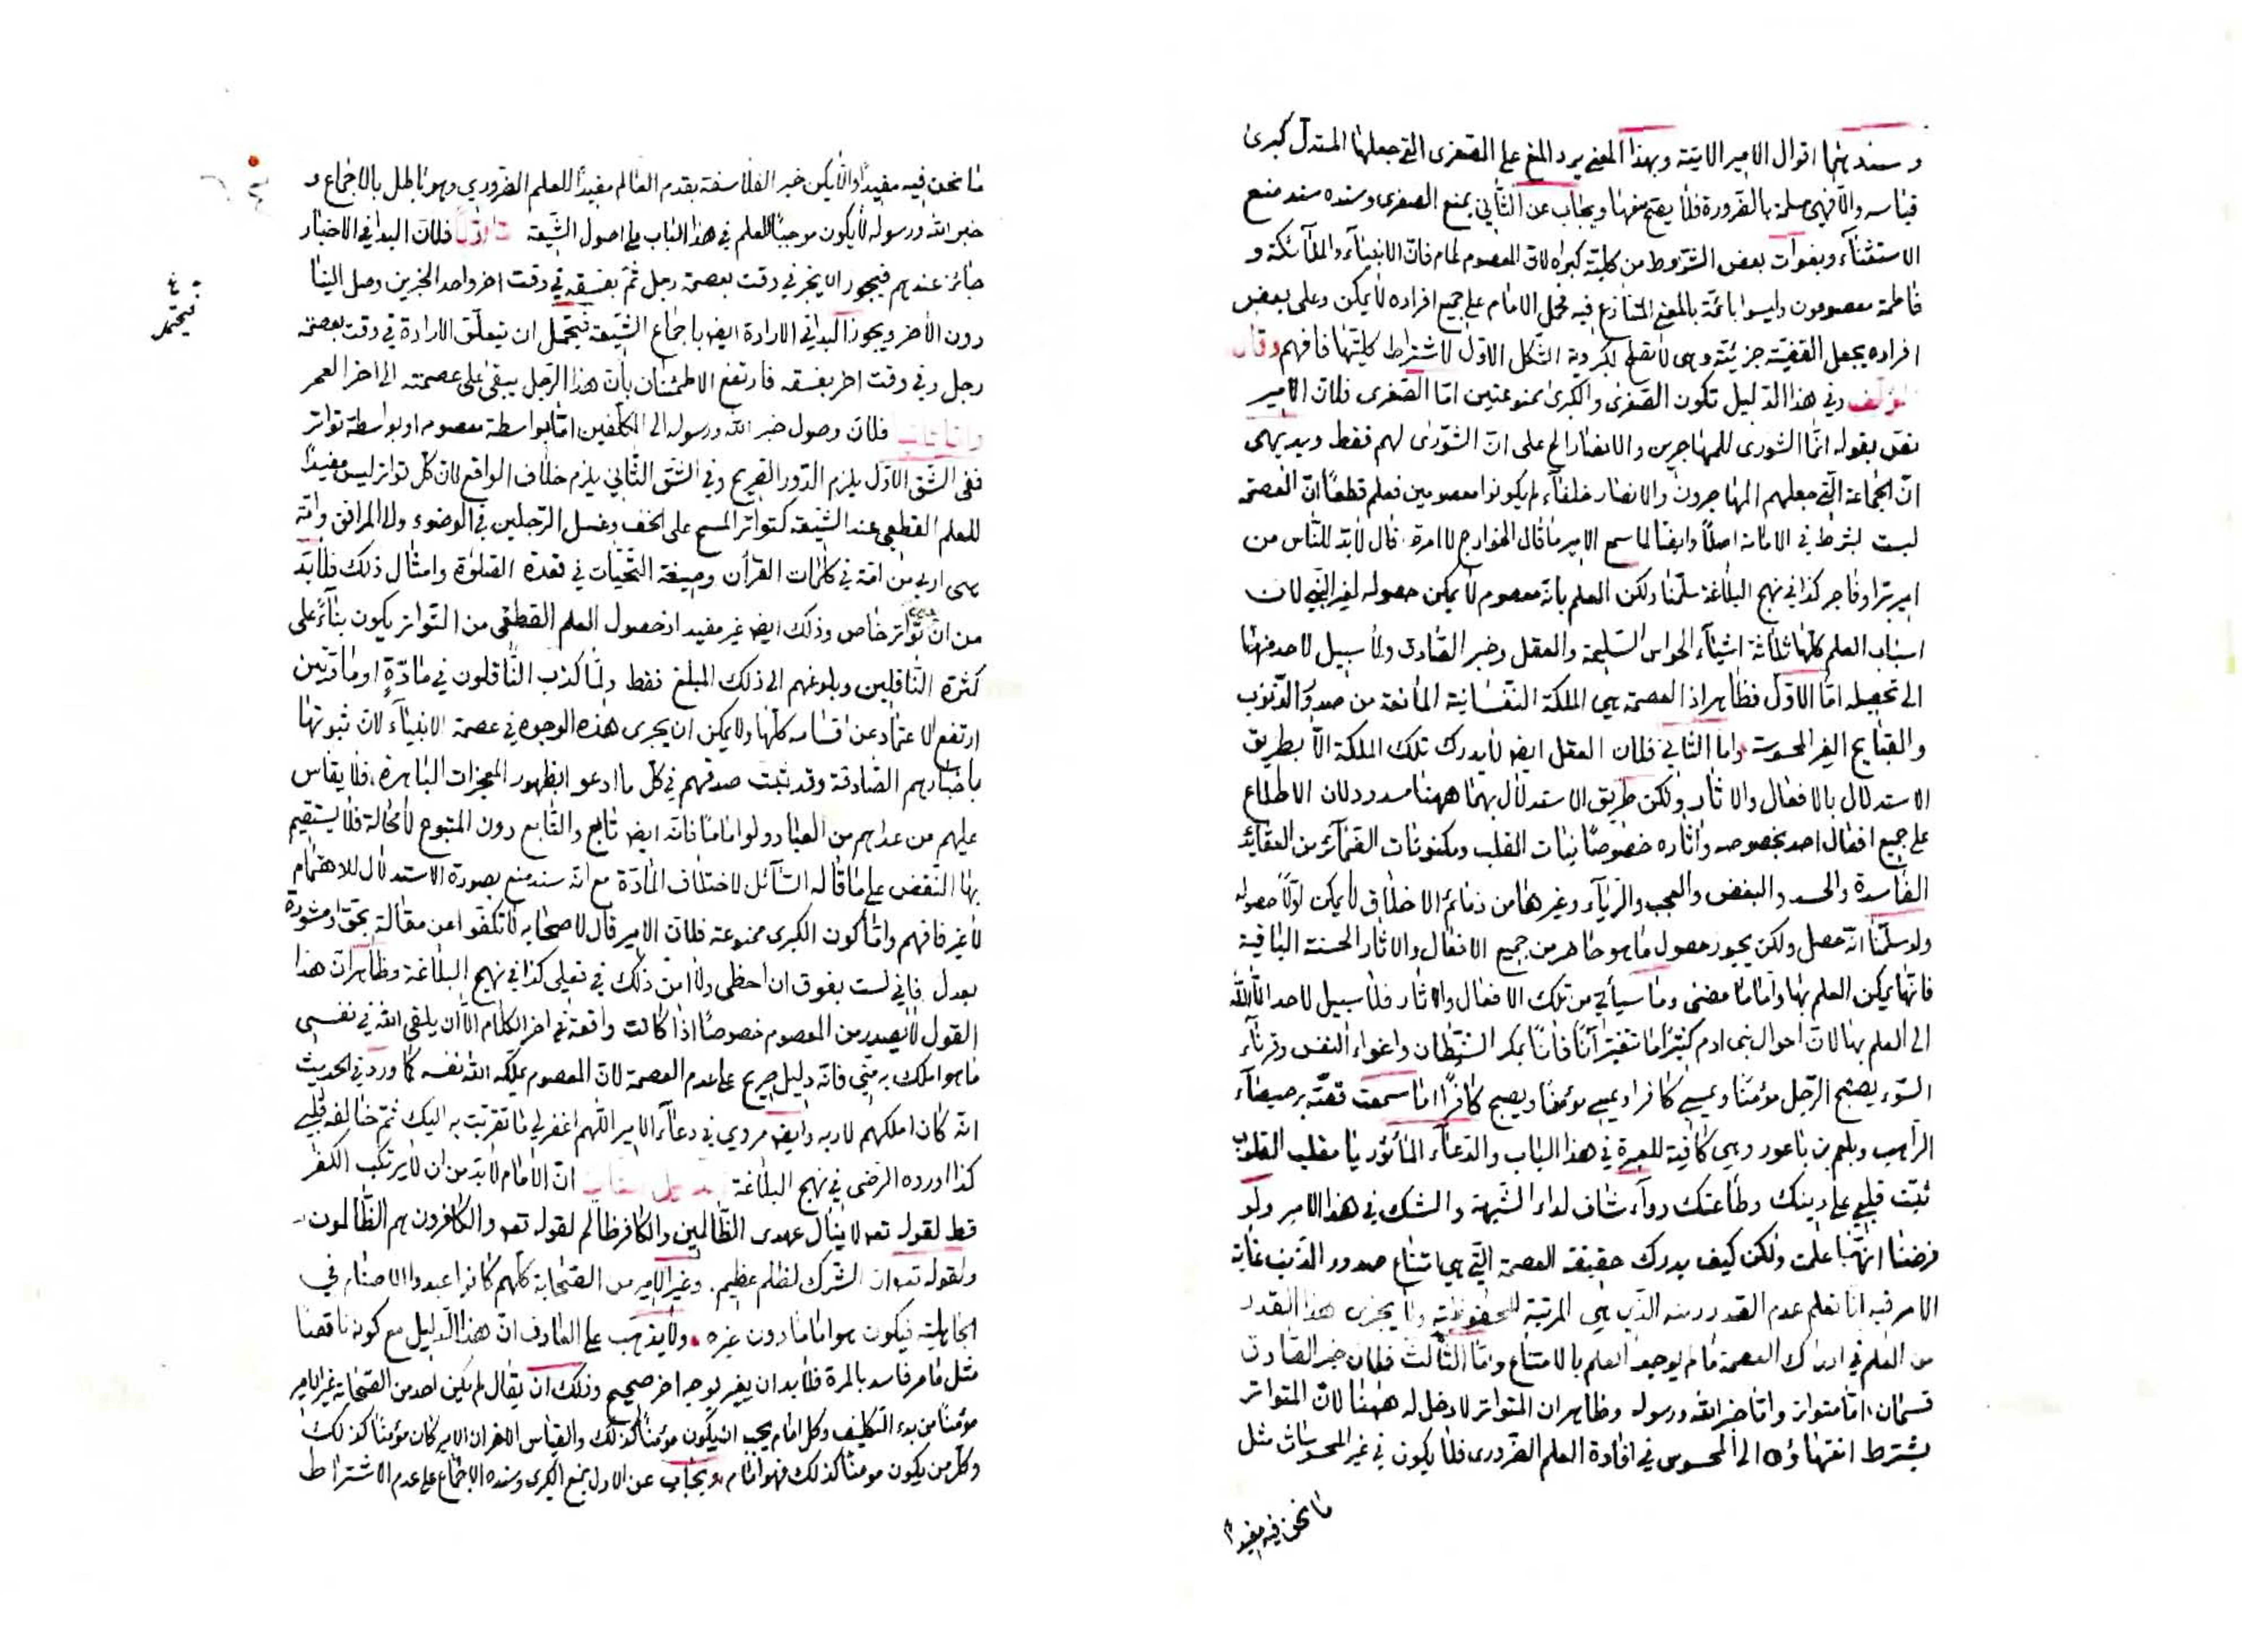 و سندهما اقوال الامير الاتية وبهذا المعنى يرد المنع على الصغرى التي جعلها المستدل كبرى
قياسه والا فهي مسلمة بالضرورة فلا يصح منعها ويجاب عن الثاني بمنع الصغرى وسنده سند منع
الاستثناء وبفوات بعض الشروط من كلية كبراه لان المعصوم عام فان الانبياء والملائكة و
فاطمة معصومون وليسوا بائمة بالمعنى المتنازع فيه فحمل الامام على جميع افراده لا يمكن وعلى بعض
افراده يجعل القضية جزئية وهي لا تصلح لكبروية الشكل الاول لاشتراط كليتها فافهم وقال
المؤلف وفي هذا الدليل تكون الصغرى والكبرى ممنوعتين اما الصغرى فلان الامير
نص بقوله انما الشورى للمهاجرين والانصار الخ على ان الشورى لهم فقط وبديهي
ان الجماعة التي جعلهم المهاجرون والانصار خلفاء لم يكونوا معصومين فعلم قطعا ان العصمة
ليست بشرط في الامامة اصلا وايضا لما سمع الامير ما قال الخوارج لا امرة قال لابد للناس من
امير بر او فاجر كذا في نهج البلاغة سلمنا ولكن العلم بانه معصوم لا يمكن حصوله لغير النبي لان
اسباب العلم كلها ثلاثة اشياء الحواس السليمة والعقل وخبر الصادق ولا سبيل لاحد منها
الى تحصيله اما الاول فظاهر اذ العصمة هي الملكة النفسانية المانعة من صدور الذنوب
والقبايح الغير المحسوسة واما الثاني فلان العقل ايضا لا يدرك تلك الملكة الا بطريق
الاستدلال بالافعال والاثار ولكن طريق الاستدلال بهما ههنا مسدود لان الاطلاع
على جميع افعال احد بخصوصه واثاره خصوصا نيات القلب ومكنونات الضمائر من العقايد
الفاسدة والحسد والبغض والعجب والرياء وغيرها من ذمائم الاخلاق لا يمكن اولا حصوله
ولو سلمنا انه حصل ولكن يجوز حصول ما هو حاضر من جميع الافعال والاثار الحسنة الباقية
فانها يمكن العلم بها واما ما مضى وما سيأتي من تلك الافعال والاثار فلا سبيل لاحد الا الله
الى العلم بها لان احوال بني ادم كثيرا ما تتغير آنا فآنا بمكر الشيطان واغواء النفس وقرناء
السوء يصبح الرجل مؤمنا ويمسي كافرا ويمسي مؤمنا ويصبح كافرا اما سمعت قصة برصيصاء
الراهب وبلعم بن باعور وهي كافية للعبرة في هذا الباب والدعاء المأثور يا مقلب القلوب
ثبت قلبي على دينك وطاعتك دواء شاف لداء الشبهة والشك في هذا الامر ولو
فرضنا انها علمت ولكن كيف يدرك حقيقة العصمة التي هي امتناع صدور الذنب غاية
الامر فيه انا نعلم عدم الصدور منه الذي هي المرتبة المحفوظية ولا يجزى هذا القدر
من العلم في ادراك العصمة ما لم يوجد العلم بالامتناع واما الثالث فلان خبر الصادق
قسمان اما متواتر واما خبر الله ورسوله وظاهر ان المتواتر لا دخل له ههنا لان المتواتر
يشترط انتهاؤه الى المحسوس في افادة العلم الضروري فلا يكون في غير المحسوسات مثل
ما نحن فيه مفيدا
ما نحن فيه مفيدا والا يكن خبر الفلاسفة بقدم العالم مفيدا للعلم الضروري وهو باطل بالاجماع و
خبر الله ورسوله لا يكون موجبا للعلم في هذا الباب على اصول الشيعة اما اولا فلان البدا في الاخبار
جائز عندهم فيجوز ان يخبر في وقت بعصمة رجل ثم بفسقه في وقت اخر واحد الخبرين وصل الينا
دون الاخر ويجوز البدا في الارادة ايضا باجماع الشيعة فيحتمل ان تتعلق الارادة في وقت بعصمة
فيحتمل
رجل وفي وقت اخر بفسقه فارتفع الاطمئنان بان هذا الرجل يبقى على عصمته الى اخر العمر
واما ثانيا فلان وصول خبر الله ورسوله الى المكلفين اما بواسطة معصوم او بواسطة تواتر
ففي الشق الاول يلزم الدور الصريح وفي الشق الثاني يلزم خلاف الواقع لان كل تواتر ليس مفيدا
للعلم القطعي عند الشيعة كتواتر المسح على الخف وغسل الرجلين في الوضوء والى المرافق وامة
هي اربى من امة في كلمات القرآن وصيغة التحيات في قعدة الصلوة وامثال ذلك فلا بد
من ان تواتر خاص وذلك ايضا غير مفيد اذ حصول العلم القطعي من التواتر يكون بناء على
كثرة الناقلين وبلوغهم الى ذلك المبلغ فقط ولما كذب الناقلون في مادة او مادتين
ارتفع الاعتماد عن اقسامه كلها ولا يمكن ان يجرى هذه الوجوه في عصمة الانبياء لان ثبوتها
باخبارهم الصادقة وقد ثبت صدقهم في كل ما ادعوا بظهور المعجزات الباهرة فلا يقاس
عليهم من عداهم من العباد ولو اماما فانه ايضا تابع والتابع دون المتبوع لا محالة فلا يستقيم
بها النقض على ما قاله السائل لاختلاف المادة مع انه سند منع بصورة الاستدلال للاهتمام
لا غير فافهم واما كون الكبرى ممنوعة فلان الامير قال لاصحابه لا تكفوا عن مقالة بحق او مشورة
بعدل فاني لست بفوق ان اخطى ولا امن ذلك في فعلي كذا في نهج البلاغة وظاهر ان هذا
القول لا يصدر من المعصوم خصوصا اذا كانت واقعة في اخر الكلام الا ان يلقي الله في نفسي
ما هو املك به مني فانه دليل صريح على عدم العصمة لان المعصوم يملكه الله نفسه كما ورد في الحديث
انه كان املكهم لاربه وايضا مروي في دعاء الامير اللهم اغفر لي ما تقربت به اليك ثم خالفه قلبي
كذا اورده الرضي في نهج البلاغة ان الامام لابد من ان لا يرتكب الكفر
قط لقوله تعه لا ينال عهدى الظالمين والكافر ظالم لقوله تعه والكافرون هم الظالمون
ولقوله تعه ان الشرك لظلم عظيم. وغير الامير من الصحابة كلهم كانوا عبدوا الاصنام في
الجاهلية فيكون هو اماما دون غيره ولا يذهب على العارف ان هذا الدليل مع كونه ناقصا
مثل ما مر فاسد بالمرة فلا بد ان يغير بوجه اخر صحيح وذلك ان يقال لم يكن احد من الصحابة غير الامير
مؤمنا من بدء التكليف وكل امام يجب ان يكون مؤمنا كذلك والقياس الاخر ان الامير كان مؤمنا كذلك
وكل من يكون مومنا كذلك فهو امام ويجاب عن الاول بمنع الكبرى وسنده الاجماع على عدم الاشتراط